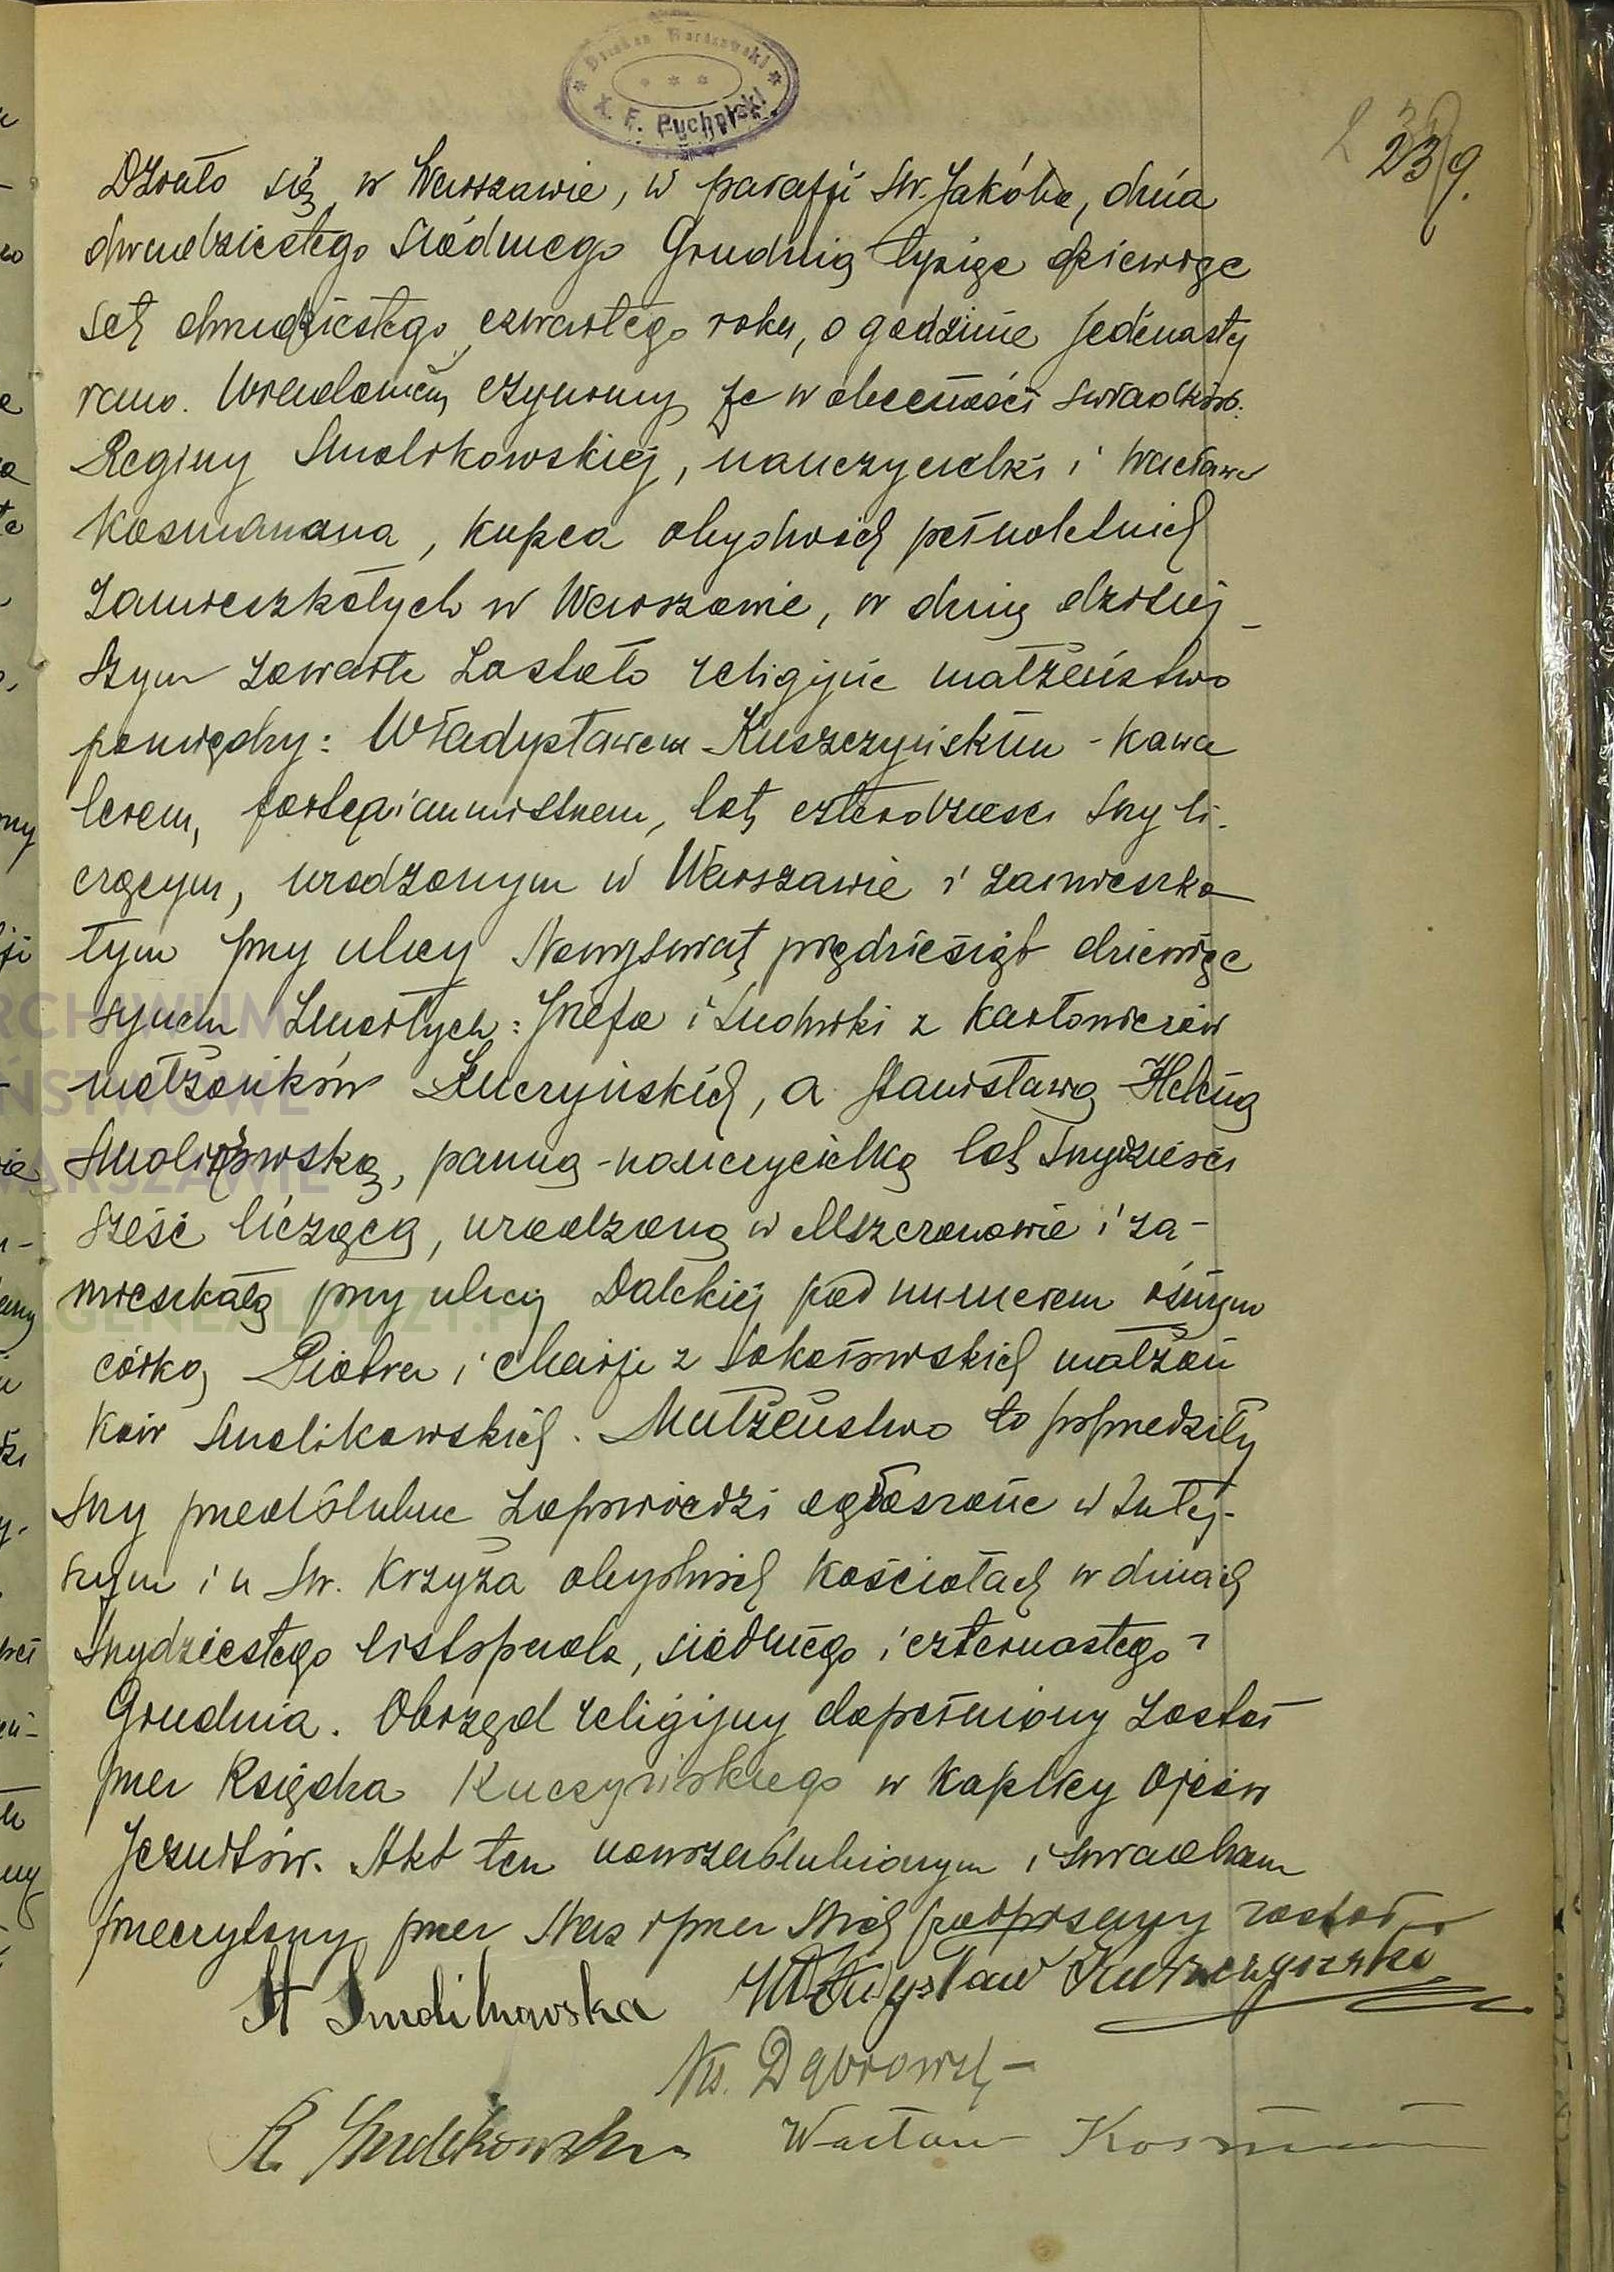 Dziekan Warszawski
X. F. Pucholski
239.
Działo się w Warszawie, w parafji Św. Jakóba, dnia
dwudziestego siódmego Grudnia tysiąc dziewięc
set dwudziestego czwartego roku, o godzinie jedenastej
rano. Wiadomem czynimy że w obecności świadków:
Reginy Smolikowskiej, nauczycielki i Wacława
Kosmana, kupca obydwóch pełnoletnich
zamieszkałych w Warszawie, w dniu dzisiej_
szym zawarte zostało religijne małżeństwo
pomiędzy: Władysławem Kuszczyńskim - kawa
lerem, fortepianmistrzem, lat czterdzieści trzy li-
czącym, urodzonym w Warszawie i zamieszka
łym przy ulicy Nowyświat pięćdziesiąt dziewięć
synem zmarłych: Józefa i Ludwiki z Karłowiczów
małżonków Kuczyńskich, a Stanisławą Heleną
Smolikowską, panną - nauczycielką lat trzydzieści
sześć liczącą, urodzoną w Mszczonowie i za-
mieszkałą przy ulicy Dalekiej pod numerem ósmym
córką Piotra i Marji z Sokołowskich małżon
ków Smolikowskich. Małżeństwo to poprzedziły
trzy przedślubne zapowiedzi ogłoszone w tutej-
szym i u Św. Krzyża obydwóch kościołach w dniach
trzydziestego listopada, siódmego i czternastego
Grudnia. Obrzęd religijny dopełniony został
przez Księdza Kuczyńskiego w kaplicy Ojców
Jezuitów. Akt ten nowozaślubionym i świadkom
przeczytany przez Nas i przez Nich podpisany został
St Smolikowska Władysław Kuszczyński
Ks. Dąbrowsk
R. Smolikowska Wacław Kosman
ARCHIWUM
PAŃSTWOWE
WARSZAWIE
GENEALODZY.PL